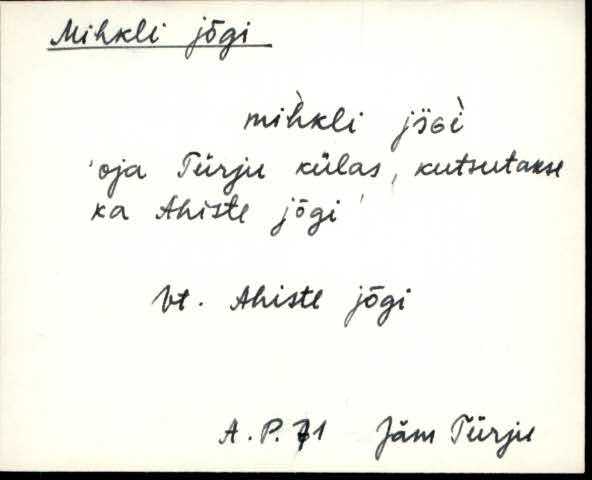 Mihkli jõgi
mìhkli jöɢì
'oja Türju külas, kutsutakse
ka Ahiste jõgi'
Vt. Ahiste jõgi
A. P. 71 Jäm Türju